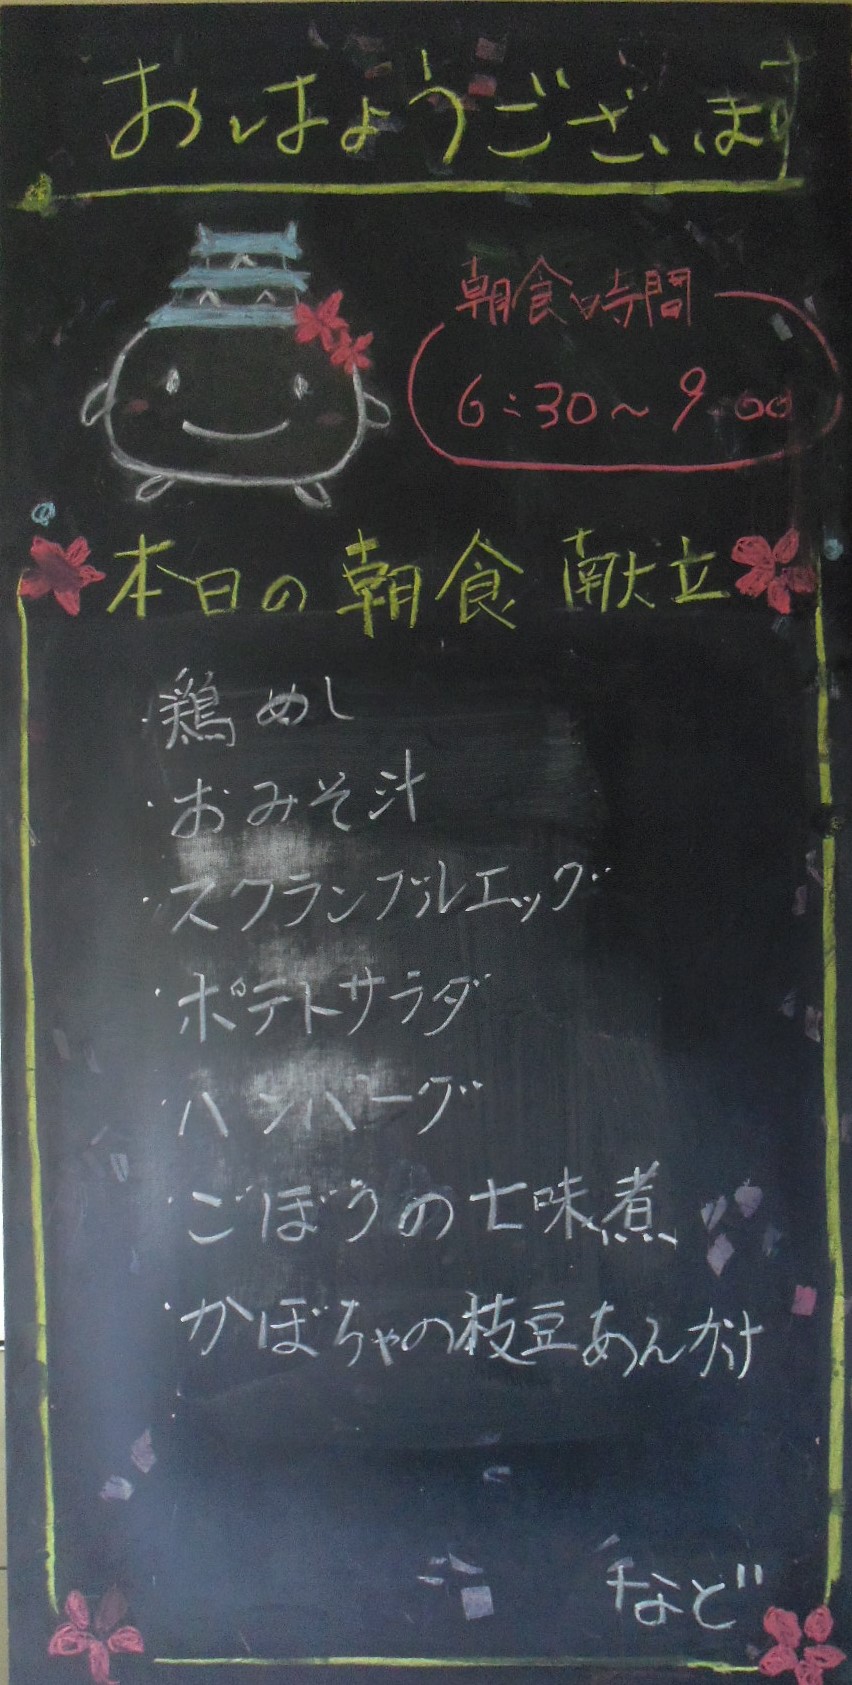 おはようございます
朝食時間
6:30～9:00
本日の朝食献立
・鶏めし
・おみそ汁
・スクランブルエッグ
・ポテトサラダ
・ハンバーグ
・ごぼうの七味煮
・かぼちゃの枝豆あんかけ
など